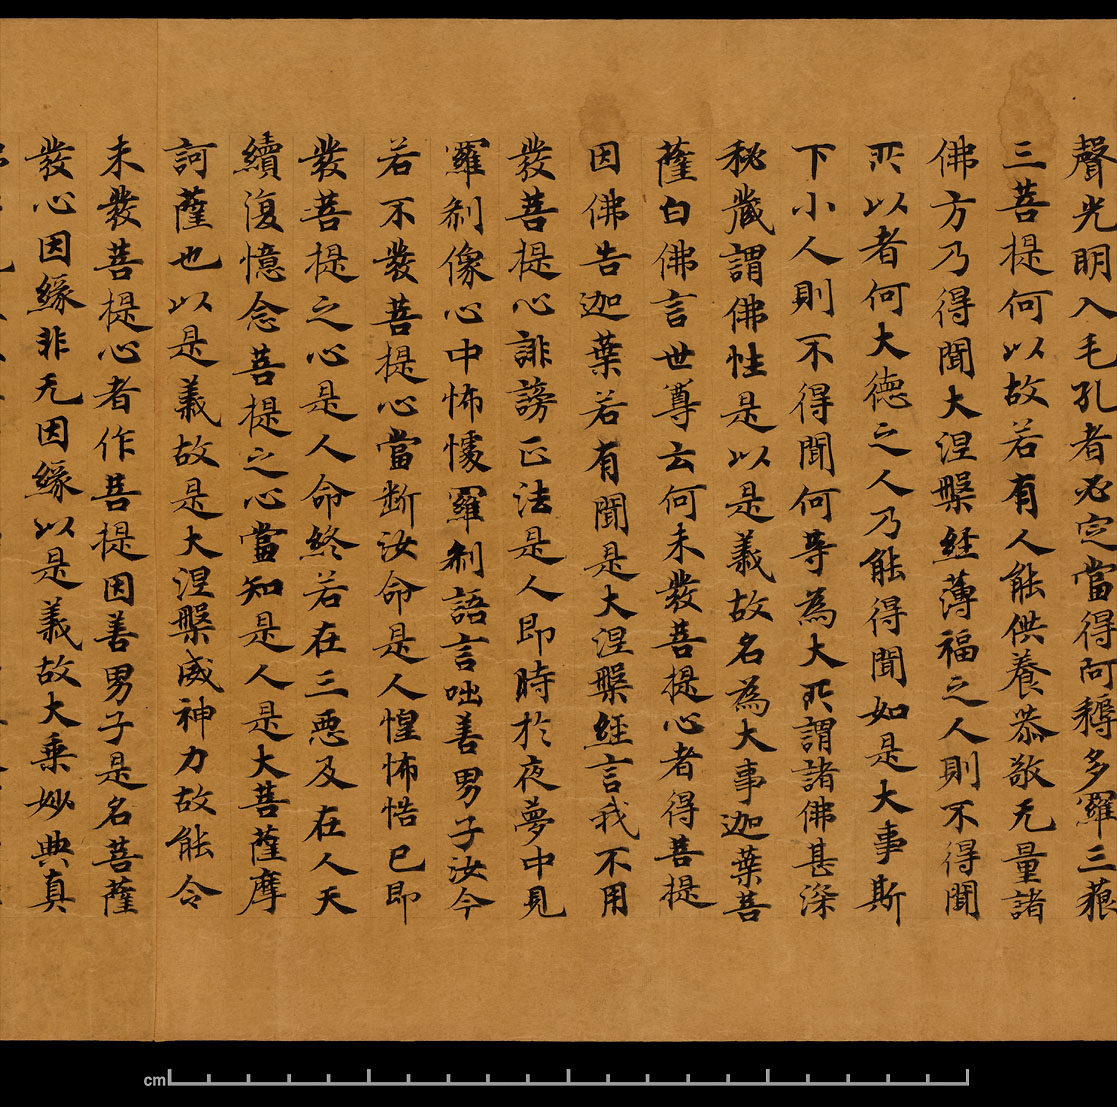 聲光明入毛孔者必定當得阿耨多羅三藐
三菩提何以故若有人能供養恭敬无量諸
佛方乃得聞大涅槃經薄福之人則不得聞
所以者何大德之人乃能得聞如是大事斯
下小人則不得聞何等為大所謂諸佛甚深
秘藏謂佛性是以是義故名為大事迦葉菩
薩白佛言世尊云何未發菩提心者得菩提
因佛告迦葉若有聞是大涅槃經言我不用
發菩提心誹謗正法是人即時於夜夢中見
羅剎像心中怖懅羅剎語言咄善男子汝今
若不發菩提心當断汝命是人惶怖悎已即
發菩提之心是人命終若在三惡及在人天
續復憶念菩提之心當知是人是大菩薩摩
訶薩也以是義故是大涅槃威神力故能令
未發菩提心者作菩提因善男子是名菩薩
發心因緣非无因緣以是義故大乘妙典真